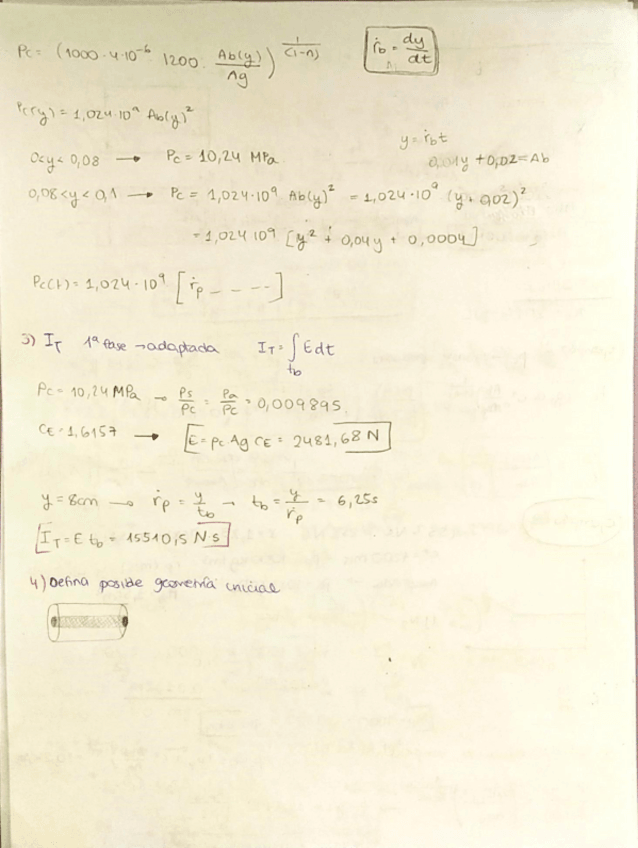 Pc = (1000 · 4·10⁻⁶ · 1200 · Ab(y)/Ag)^(1/(1-n))
ṙb = dy/dt
Pc(y) = 1,024·10⁹ Ab(y)²
y = ṙb t
0<y<0,08 → Pc = 10,24 MPa
0,01y + 0,02 = Ab
0,08<y<0,1 → Pc = 1,024·10⁹ Ab(y)² = 1,024·10⁹ (y+0,02)²
= 1,024 10⁹ [y² + 0,04y + 0,0004]
Pc(t) = 1,024·10⁹ [ṙp - - - -]
3) IT 1ª fase → adaptada IT = ∫tb E dt
Pc = 10,24 MPa → Ps/Pc = Pa/Pc = 0,009895
CE = 1,6157 → E = pc Ag CE = 2481,68 N
y = 8cm → ṙp = y/tb → tb = y/ṙp = 6,25s
IT = E tb = 15510,5 N·s
4) Defina posible geometría inicial